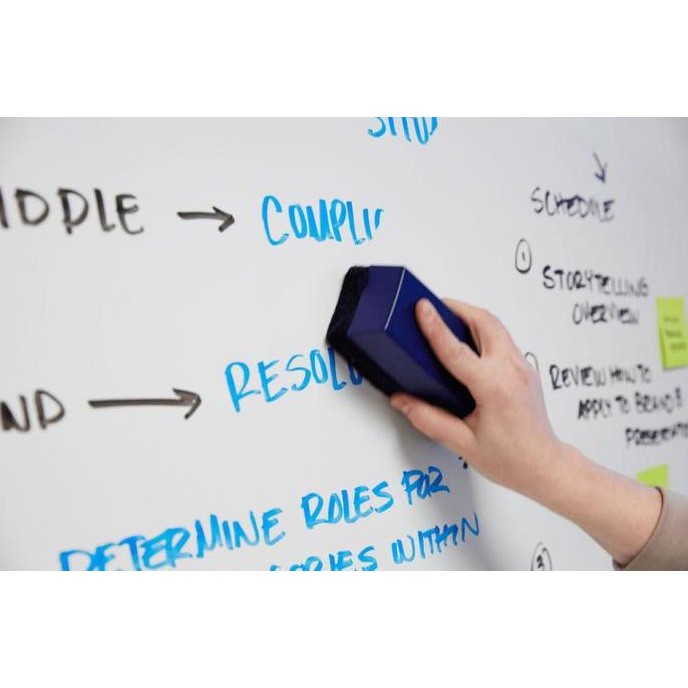 SITU
IDDLE → COMPLI
ND → RESOL
DETERMINE ROLES FOR
ORIES WITHIN
SCHEDULE
1 STORYTELLING
OVERVIEW
REVIEW HOW TO
APPLY TO BRAND &
3